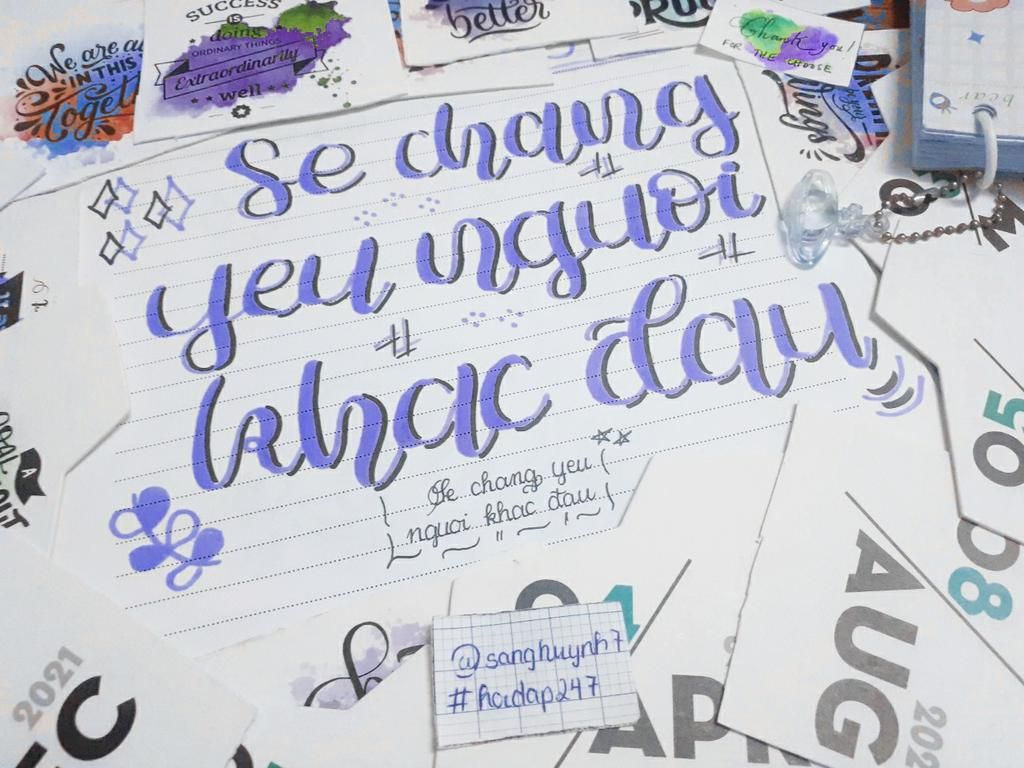 We are all
IN THIS
toget
SUCCESS
IS
doing
ORDINARY THINGS
Extraordinarily
well
better
Thank you!
FOR THE CHOOSE
things
bear
Se chang
yeu nguoi
khac dau
Se chang yeu
nguoi khac đau
A
05
08
AUG
202
2021
EC
APR
@sanghuynh7
#hoidap247